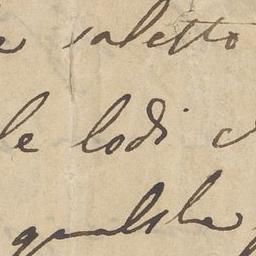 e saletto
le lodi
qualche